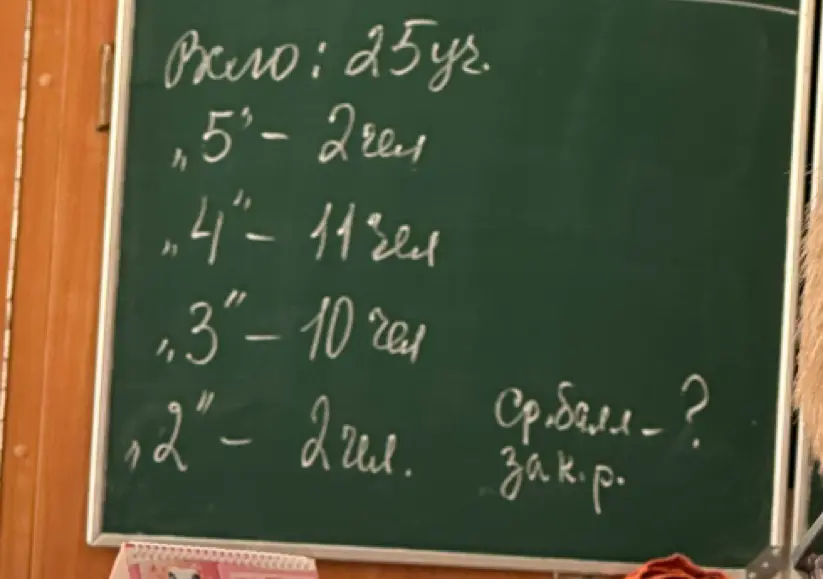 Вкло: 25 уч.
„5” - 2 чел
„4” - 11 чел
„3” - 10 чел
„2” - 2 чел.
Ср. балл - ?
за к.р.